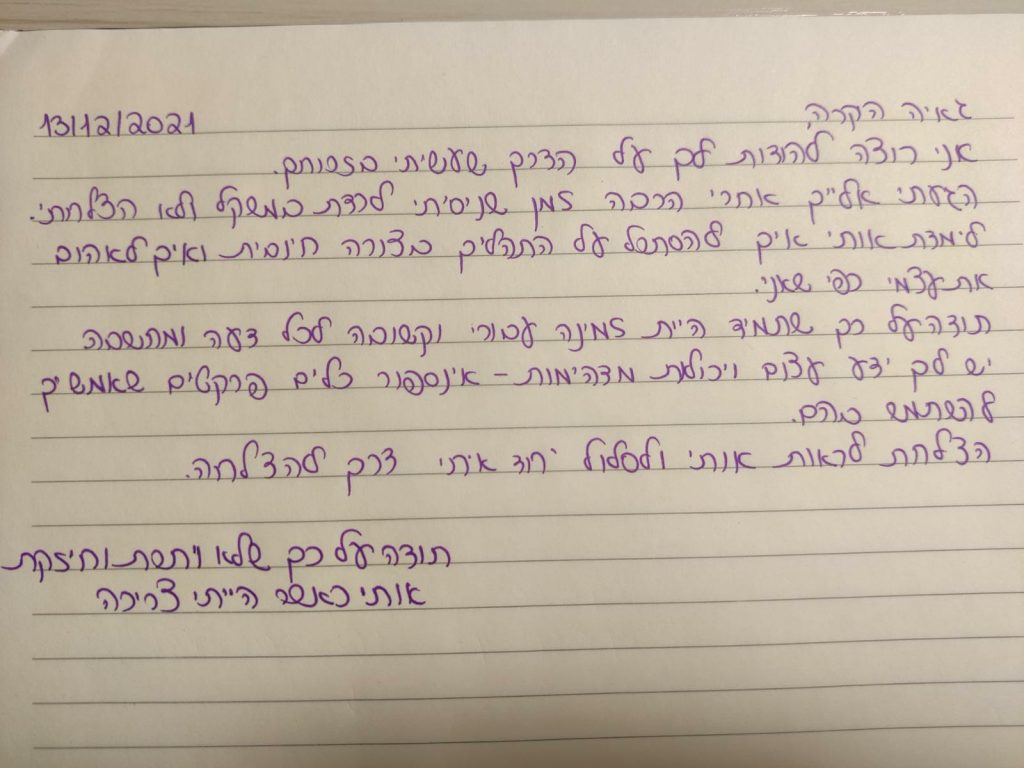 13/12/2021
גאיה היקרה,
אני רוצה להודות לך על הדרך שעשיתי בזכותך.
הגעתי אלייך אחרי הרבה זמן שניסיתי לרדת במשקל ולא הצלחתי.
לימדת אותי איך להסתכל על התהליך בצורה חיובית ואיך לאהוב
את עצמי כפי שאני.
תודה על כך שתמיד היית זמינה עבורי וקשובה לכל דעה ומחשבה
יש לך ידע עצום ויכולות מדהימות - אינספור כלים פרקטים שאמשיך
להשתמש בהם.
הצלחת לראות אותי ולסלול יחד איתי דרך להצלחה.
תודה על כך שלא ויתרת וחיזקת
אותי כאשר הייתי צריכה